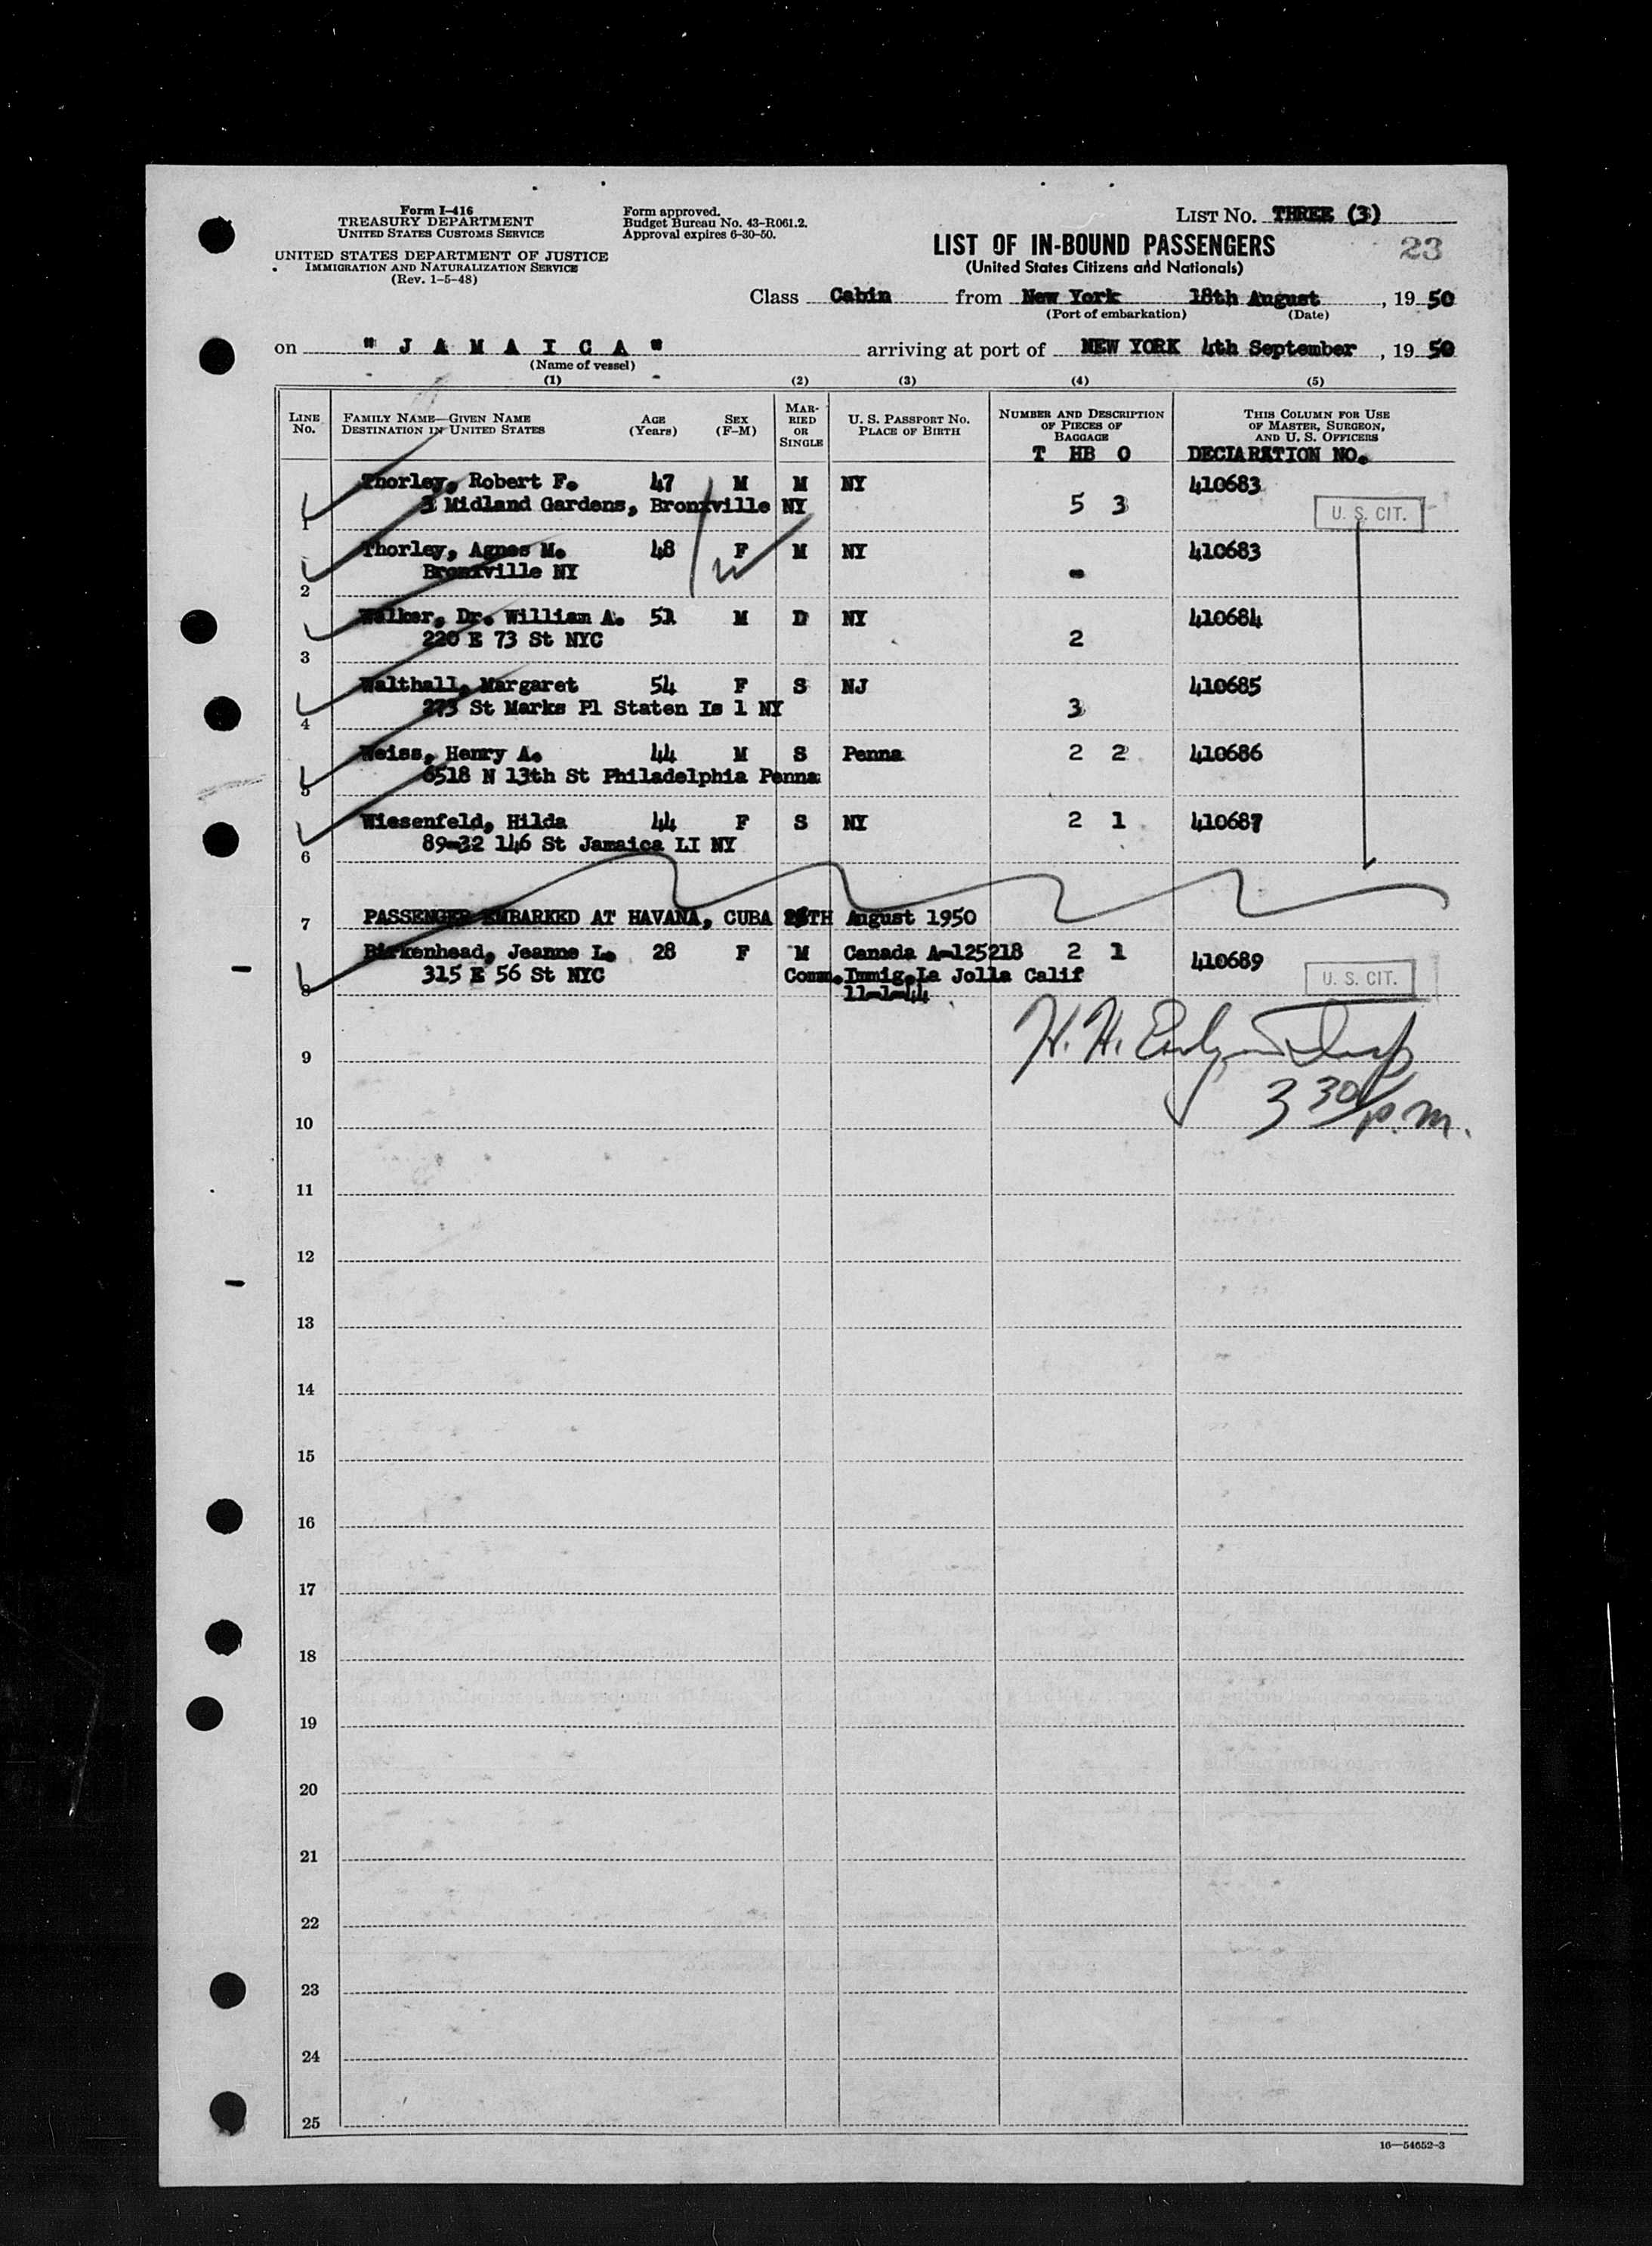 Form I-416
TREASURY DEPARTMENT
UNITED STATES CUSTOMS SERVICE
UNITED STATES DEPARTMENT OF JUSTICE
IMMIGRATION AND NATURALIZATION SERVICE
(Rev. 1-5-48)
Form approved.
Budget Bureau No. 43-R061.2.
Approval expires 6-30-50.
LIST No. THREE (3)
LIST OF IN-BOUND PASSENGERS
23
(United States Citizens and Nationals)
Class Cabin from New York 18th August, 19 50
(Port of embarkation) (Date)
on "JAMAICA" arriving at port of NEW YORK 4th September, 19 50
(Name of vessel)
(1) (2) (3) (4) (5)
LINE No.
FAMILY NAME—GIVEN NAME
DESTINATION IN UNITED STATES
AGE (Years)
SEX (F-M)
MARRIED OR SINGLE
U. S. PASSPORT NO.
PLACE OF BIRTH
NUMBER AND DESCRIPTION OF PIECES OF BAGGAGE
T HB O
THIS COLUMN FOR USE OF MASTER, SURGEON, AND U. S. OFFICERS
DECLARATION NO.
Thorley, Robert F. 47 M M NY 410683
1 3 Midland Gardens, Bronxville NY 5 3 U. S. CIT.
Thorley, Agnes M. 48 F M NY 410683
2 Bronxville NY -
Walker, Dr. William A. 51 M D NY 410684
3 220 E 73 St NYC 2
Walthall, Margaret 54 F S NJ 410685
4 273 St Marks Pl Staten Is 1 NY 3
Weiss, Henry A. 44 M S Penna 2 2 410686
5 6518 N 13th St Philadelphia Penna
Wiesenfeld, Hilda 44 F S NY 2 1 410687
6 89-32 146 St Jamaica LI NY
7 PASSENGER EMBARKED AT HAVANA, CUBA TH August 1950
Birkenhead, Jeanne L. 28 F M Canada A-125218 2 1 410689
8 315 E 56 St NYC Comm.Immig.La Jolla Calif U. S. CIT.
11-1-44
H. H.
9
3 30/p.m.
10
11
12
13
14
15
16
17
18
19
20
21
22
23
24
25
16—54652-3